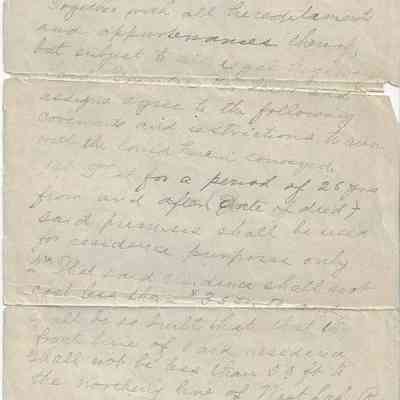 Together with all hereditaments
and appurtenances thereof,
but subject to
and
assigns agree to the following
covenants and restrictions to run
with the land herein conveyed
1st That for a period of 25 yrs
from and after date of deed
said premises shall be used
for residence purposes only
That said residence shall not
cost less than
shall be so built that that the
front line of said residence
shall not be less than ft to
the northerly line of